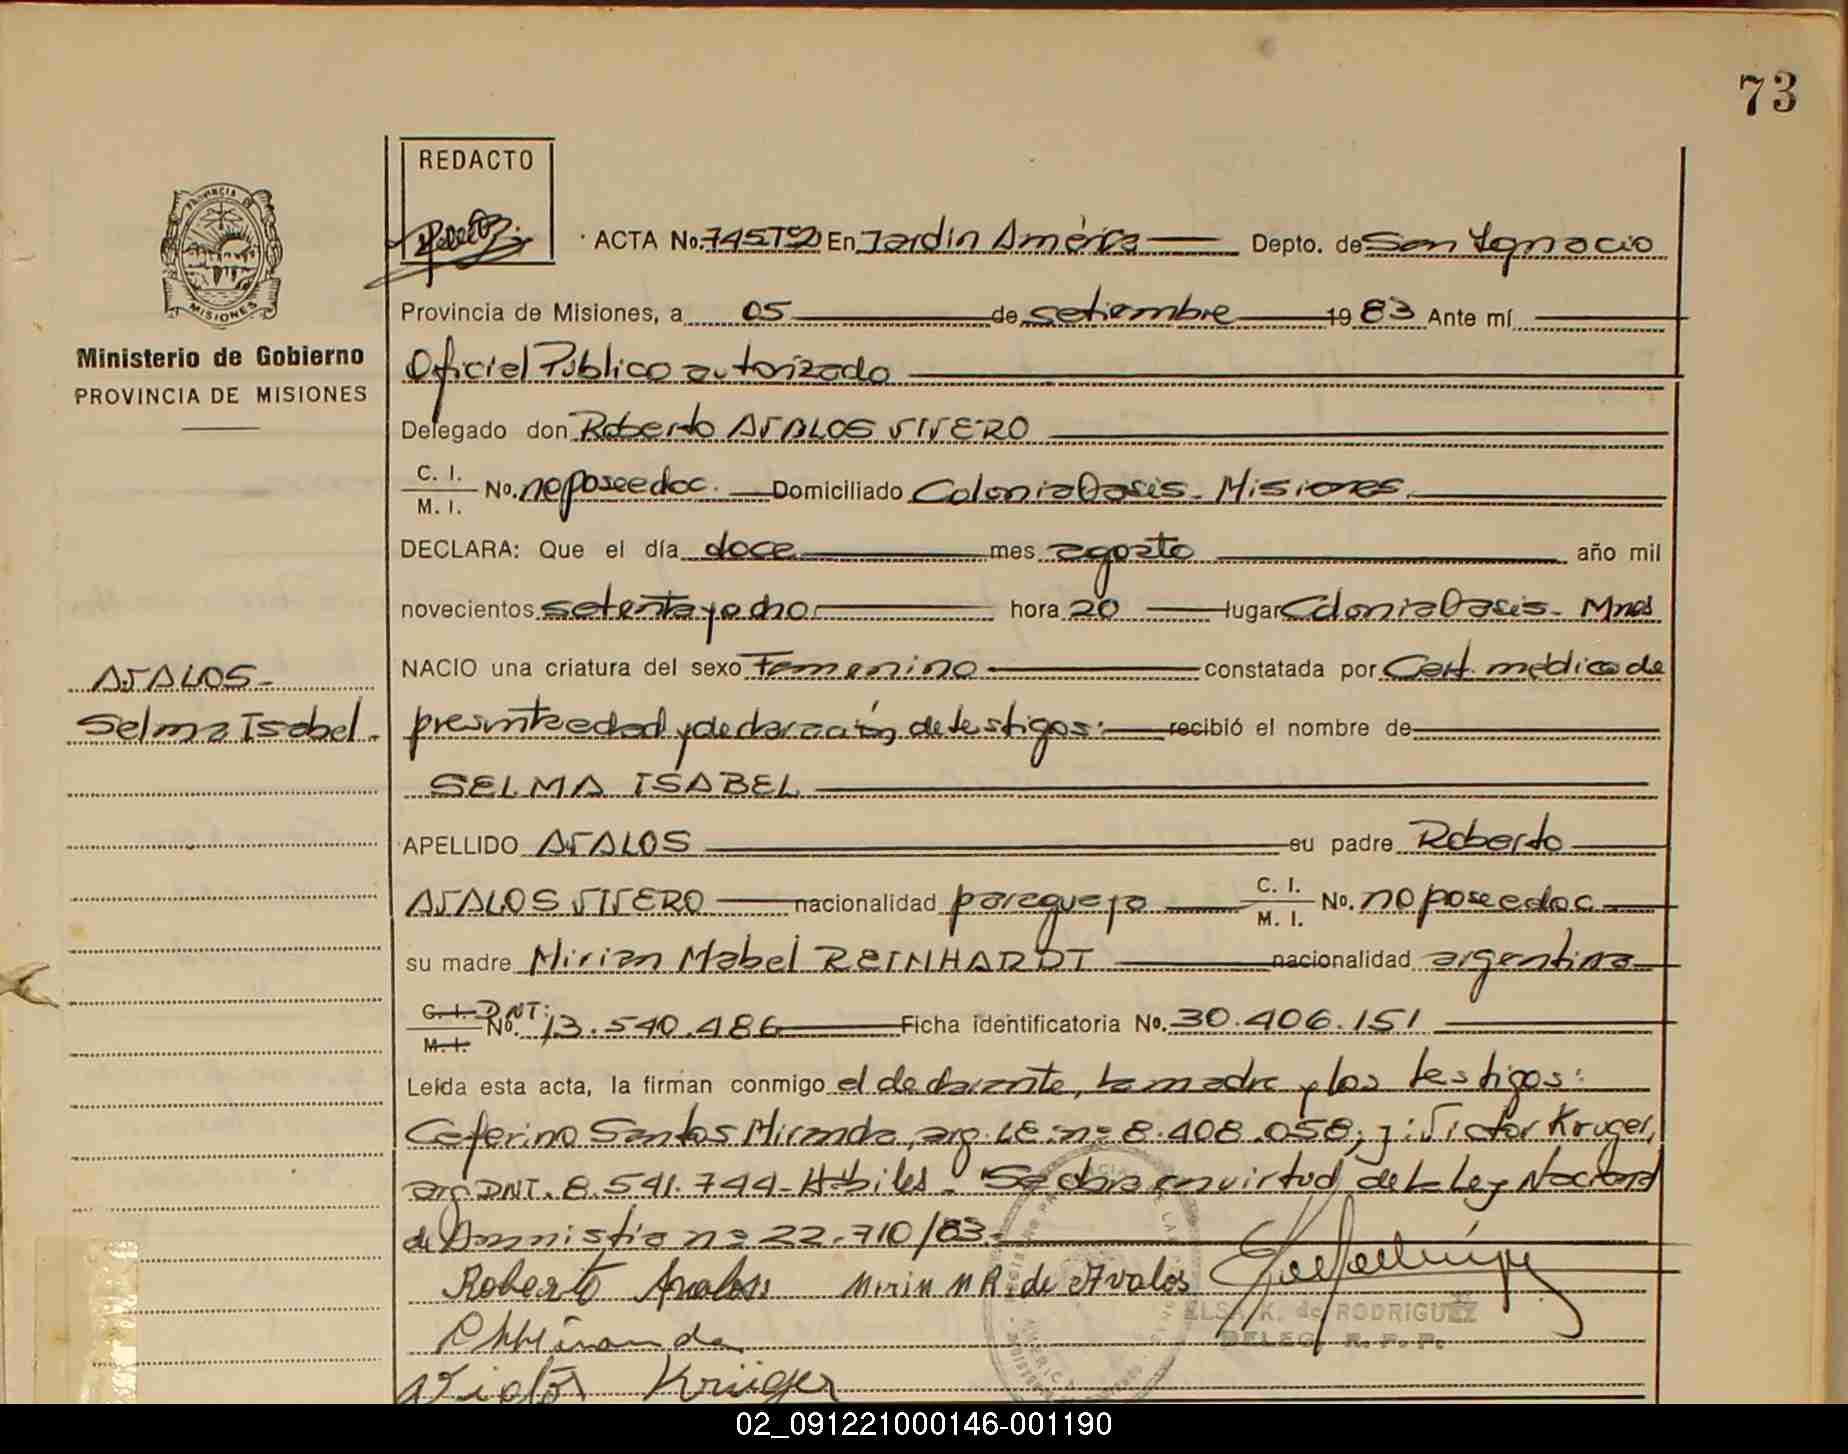 73
REDACTO
PROVINCIA DE
MISIONES
ACTA No. 745 To 2 En Jardin América Depto. de San Ignacio
Provincia de Misiones, a 05 de setiembre 1983 Ante mí
Ministerio de Gobierno
PROVINCIA DE MISIONES
Oficiel Público autorizado
Delegado don Roberto AVALOS VIVERO
C. I.
M. I. No. no posee doc. Domiciliado Colonia Oasis - Misiones.
DECLARA: Que el día doce mes agosto año mil
novecientos setenta y ocho hora 20 lugar Colonia Oasis - Mnes
NACIO una criatura del sexo Femenino constatada por Cert. médico de
AVALOS -
Selma Isabel -
presunta edad y declaración de testigos: recibió el nombre de
SELMA ISABEL
APELLIDO AVALOS su padre Roberto
AVALOS VIVERO nacionalidad paraguayo C. I. M. I. No. no posee doc
su madre Mirian Mabel REINHARDT nacionalidad argentina
C. I. M. I. DNI: No. 13.540.486 Ficha identificatoria No. 30.406.151
Leída esta acta, la firman conmigo el declarante, la madre y los testigos:
Ceferino Santos Miranda, arg. LE: nº 8.408.058; y: Victor Kruger,
arg DNI. 8.541.744 - Hábiles - Se labra en virtud de la Ley Nacional
de Amnistia nº 22.710/83.-
Roberto Avalos Mirin M R. de Avalos
ELSA K. de RODRIGUEZ
DELEG. R. P. P.
Miranda
Victor Krüger
02_091221000146-001190